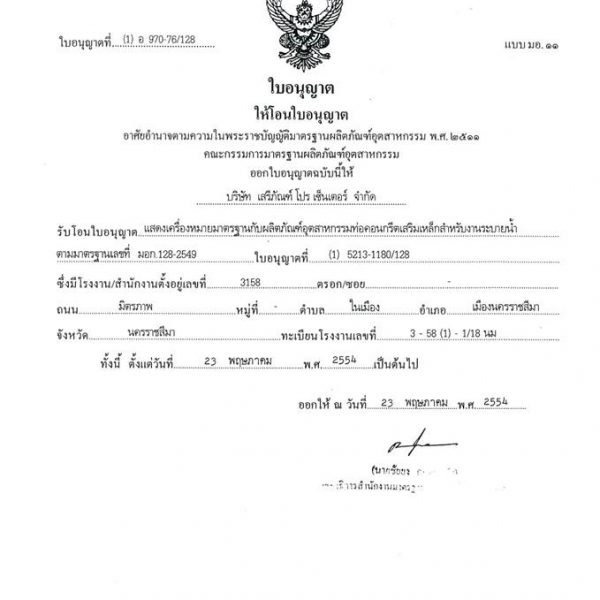 ใบอนุญาตที่ (1) อ 970-76/128 แบบ มอ. ๑๑
ใบอนุญาต
ให้โอนใบอนุญาต
อาศัยอำนาจตามความในพระราชบัญญัติมาตรฐานผลิตภัณฑ์อุตสาหกรรม พ.ศ. ๒๕๑๑
คณะกรรมการมาตรฐานผลิตภัณฑ์อุตสาหกรรม
ออกใบอนุญาตฉบับนี้ให้
บริษัท เสรีภัณฑ์ โปร เซ็นเตอร์ จำกัด
รับโอนใบอนุญาต แสดงเครื่องหมายมาตรฐานกับผลิตภัณฑ์อุตสาหกรรมท่อคอนกรีตเสริมเหล็กสำหรับงานระบายน้ำ
ตามมาตรฐานเลขที่ มอก.128-2549 ใบอนุญาตที่ (1) 5213-1180/128
ซึ่งมีโรงงาน/สำนักงานตั้งอยู่เลขที่ 3158 ตรอก/ซอย -
ถนน มิตรภาพ หมู่ที่ - ตำบล ในเมือง อำเภอ เมืองนครราชสีมา
จังหวัด นครราชสีมา ทะเบียนโรงงานเลขที่ 3 - 58 (1) - 1/18 นม
ทั้งนี้ ตั้งแต่วันที่ 23 พฤษภาคม พ.ศ. 2554 เป็นต้นไป
ออกให้ ณ วันที่ 23 พฤษภาคม พ.ศ. 2554